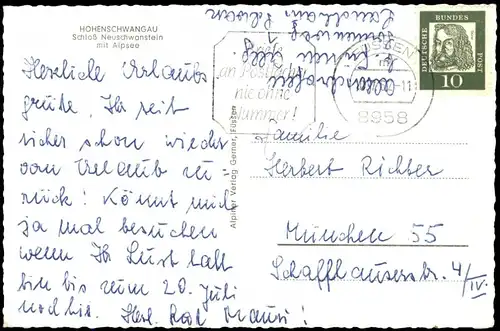 HOHENSCHWANGAU
Schloß Neuschwanstein
mit Alpsee
Herzliche Urlaubs
grüße. Ihr seit
sicher schon wieder
vom Urlaub zu-
rück! Könnt mich
ja mal besuchen
wenn Ihr Lust habt
bin bis zum 20. Juli
noch hier. Herzl.
Alpiner Verlag Gerner, Füssen
an Postfach
nie ohne
Nummer!
FÜSSEN
8958
DEUTSCHE BUNDESPOST
10
Familie
Herbert Richter
München 55
Schaffhauserstr. 4/IV.